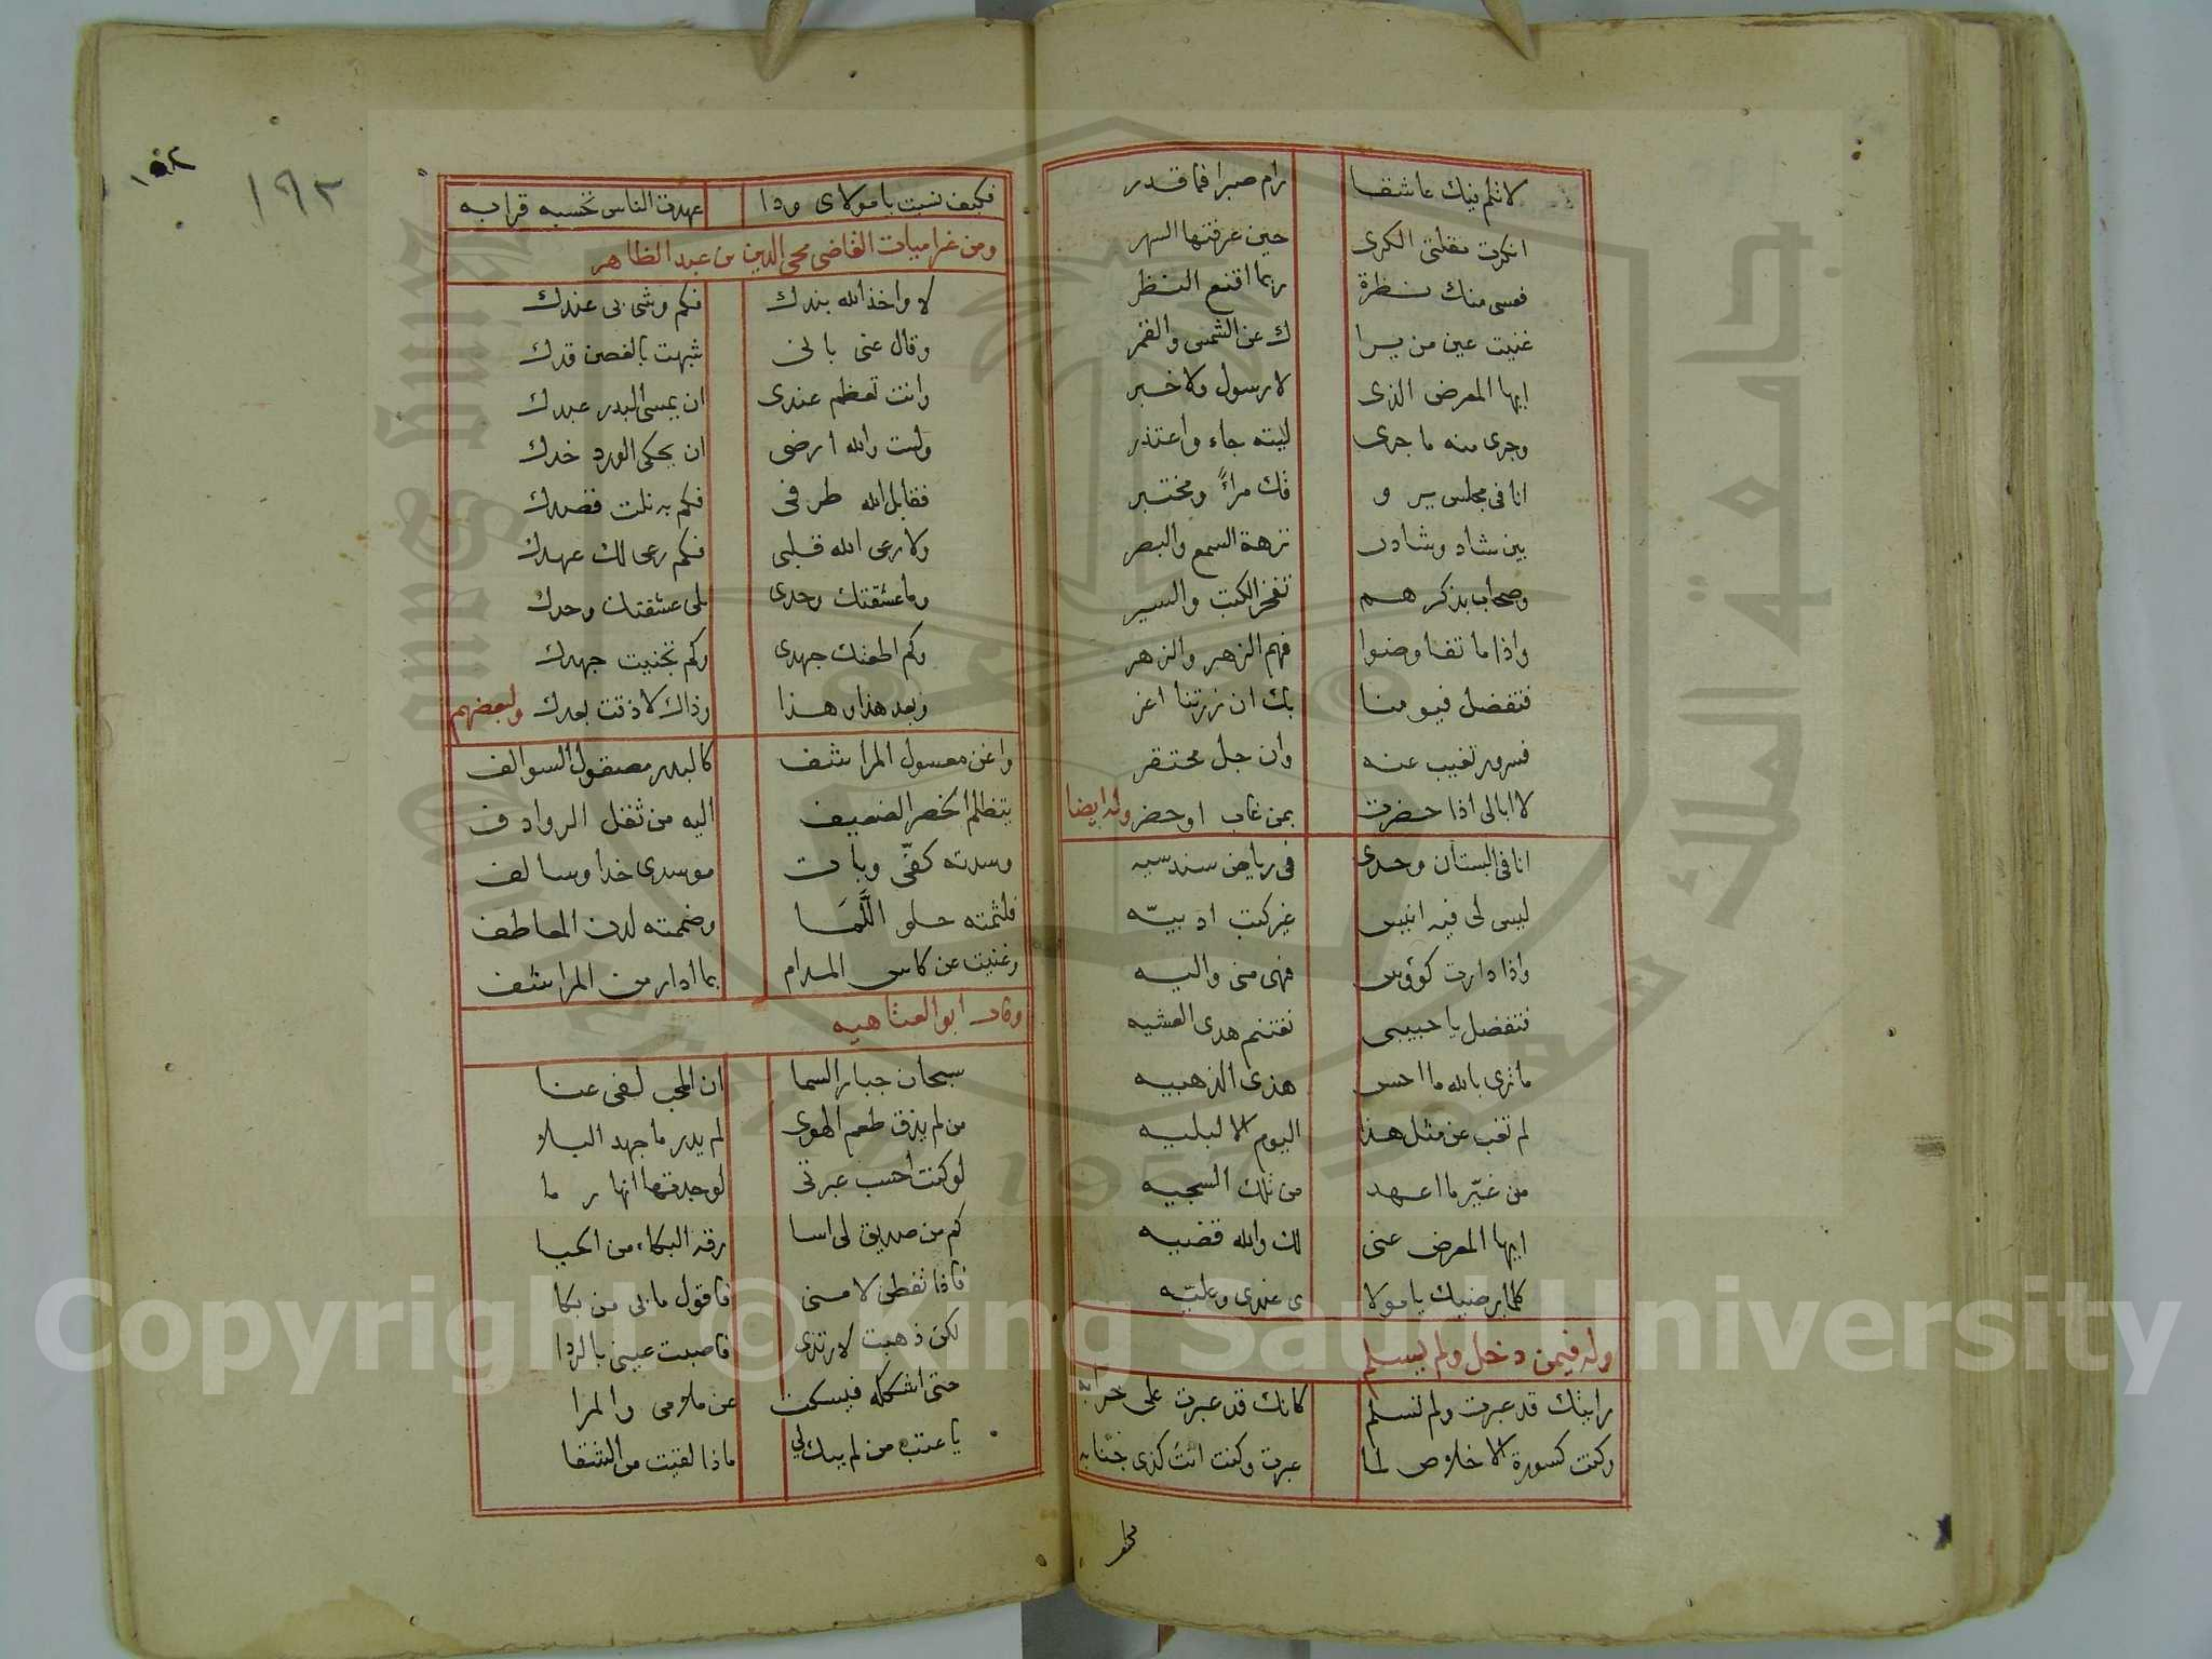 لا تلم فيك عاشقا رام صبرا فما قدر
انكرت مقلتى الكرى حين عرفتها السهر
فعسى منك نظرة ربما اقنع النظر
غنيت عين من يرا ك عن الشمس والقمر
ايها المعرض الذى لا رسول ولا خبر
وجرى منه ما جرى ليته جاء واعتذر
انا فى مجلس ير و قك مراءً ومختبر
بين شاد وشادن نزهة السمع والبصر
وصحاب بذكرهم تفخر الكتب والسير
واذا ما تفاوضوا فهم الزهر والزهر
فتفضل فيومنا بك ان زرتنا اغر
فسرور تغيب عنه وان جل محتقر
لا ابالى اذا حضرت بمن غاب او حضر وله ايضا
انا فى البستان وحدى فى رياض سندسيه
ليس لى فيه انيس غير كتب ادبيّه
واذا دارت كؤوس فهى منى واليه
فتفضل يا حبيبى نغتنم هدى العشيه
ما ترى بالله ما احسن هذى الذهبيه
لم تغب عن مثل هذا اليوم الا لبليه
من غيّر ما اعهد من تلك السجيه
ايها المعرض عنى لك والله قضيه
كلما يرضيك يا مولا ى عندى وعليّه
وله فيمن دخل ولم يسلم
رايتك قد عبرت ولم تسلم كانك قد عبرت على خرابه
وكنت كسورة الاخلاص لما عبرت وكنت انت كذى جنابه
فكيف نسيت يا مولاى ودا عهدت الناس تحسبه قرابه
ومن غراميات القاضى محى الدين بن عبد الظاهر
لا واخذ الله بندك فكم وشى بى عندك
وقال عنى بانى شبهت بالغصن قدك
وانت تعظم عندى ان يمسى البدر عبدك
ولست والله ارضى ان يحكى الورد خدك
فقابل الله طرفى فكم به نلت قصدك
ولا رعى الله قلبى فكم رعى لك عهدك
وما عشقتك وحدى بلى عشقتك وحدك
وكم اطعتك جهدى وكم تجنيت جهدك
وبعد هذا وهذا وذاك لا ذقت بعدك ولبعضهم
واغن معسول المراشف كالبدر مصقول السوالف
يتظلم الخصر الضعيف اليه من ثقل الروادف
وسدته كفّى وبات موسدى خدا وسالف
فلثمته حلو اللَّمَا وضممته لدن المعاطف
وغنيت عن كاس المدام بما ادار من المراشف
وقال ابو العتاهيه
سبحان جبار السما ان المحب لفى عنا
من لم يذق طعم الهوى لم يدر ما جهد البلا
لو كنت احسب عبرتى لوجدتها انهار ما
كم من صديق لى اسا رقه البكاء من الحيا
فاذا تفطن لامنى فاقول ما بى من بكا
لكن ذهبت لارتدى فاصبت عينى بالردا
حتى اشككه فيسكت عن ملامى والمرا
يا عتب من لم يبك لى ماذا لقيت من الشقا
١٩٢
Copyright © King Saud University
جامعة الملك سعود
King Saud University
1957